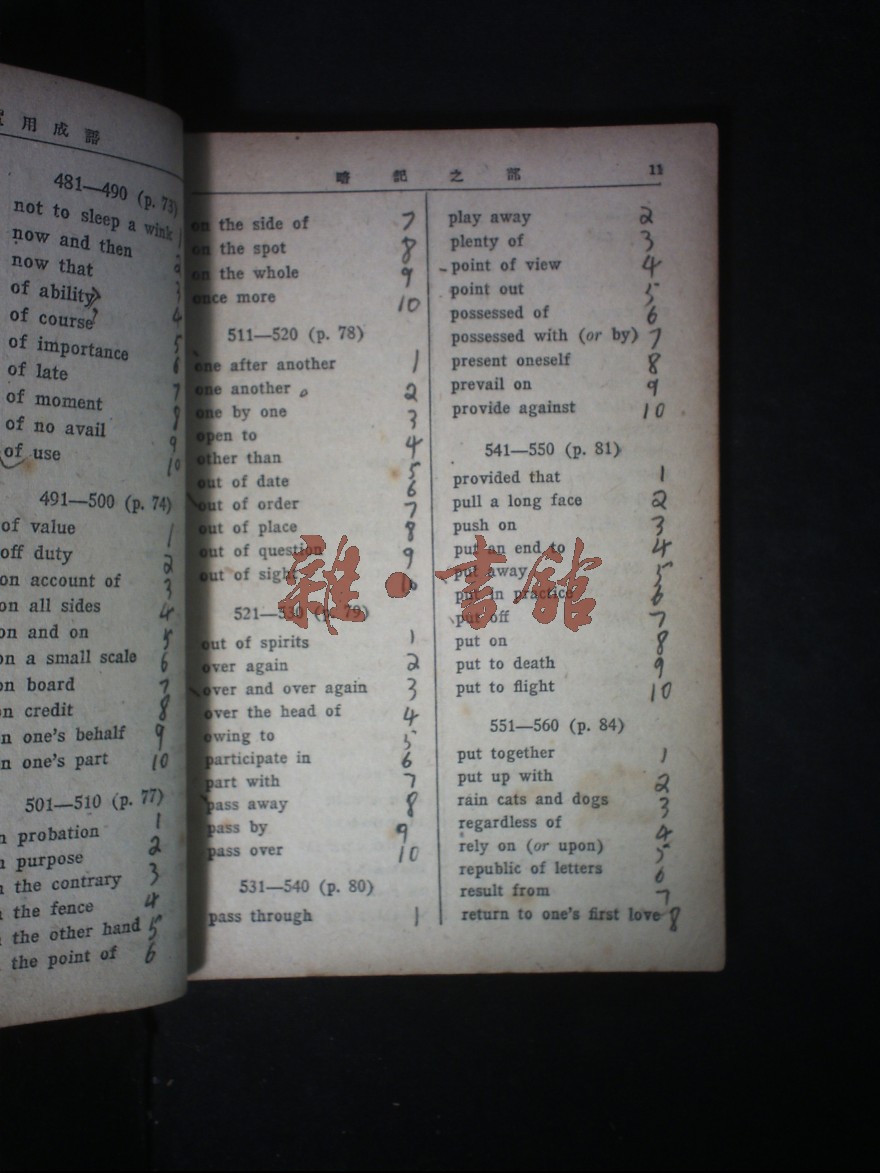 用成語
481—490 (p. 73)
not to sleep a wink 1
now and then 2
now that 3
of ability 4
of course 5
of importance 6
of late 7
of moment 8
of no avail 9
of use 10
491—500 (p. 74)
of value 1
off duty 2
on account of 3
on all sides 4
on and on 5
on a small scale 6
on board 7
on credit 8
on one's behalf 9
on one's part 10
501—510 (p. 77)
probation 1
purpose 2
the contrary 3
the fence 4
the other hand 5
the point of 6
暗記之部 11
on the side of 7
on the spot 8
on the whole 9
once more 10
511—520 (p. 78)
one after another 1
one another 2
one by one 3
open to 4
other than 5
out of date 6
out of order 7
out of place 8
out of question 9
out of sight 10
521—530 (p. 79)
out of spirits 1
over again 2
over and over again 3
over the head of 4
owing to 5
participate in 6
part with 7
pass away 8
pass by 9
pass over 10
531—540 (p. 80)
pass through 1
play away 2
plenty of 3
point of view 4
point out 5
possessed of 6
possessed with (or by) 7
present oneself 8
prevail on 9
provide against 10
541—550 (p. 81)
provided that 1
pull a long face 2
push on 3
put an end to 4
put away 5
put in practice 6
put off 7
put on 8
put to death 9
put to flight 10
551—560 (p. 84)
put together 1
put up with 2
rain cats and dogs 3
regardless of 4
rely on (or upon) 5
republic of letters 6
result from 7
return to one's first love 8
雜·書館